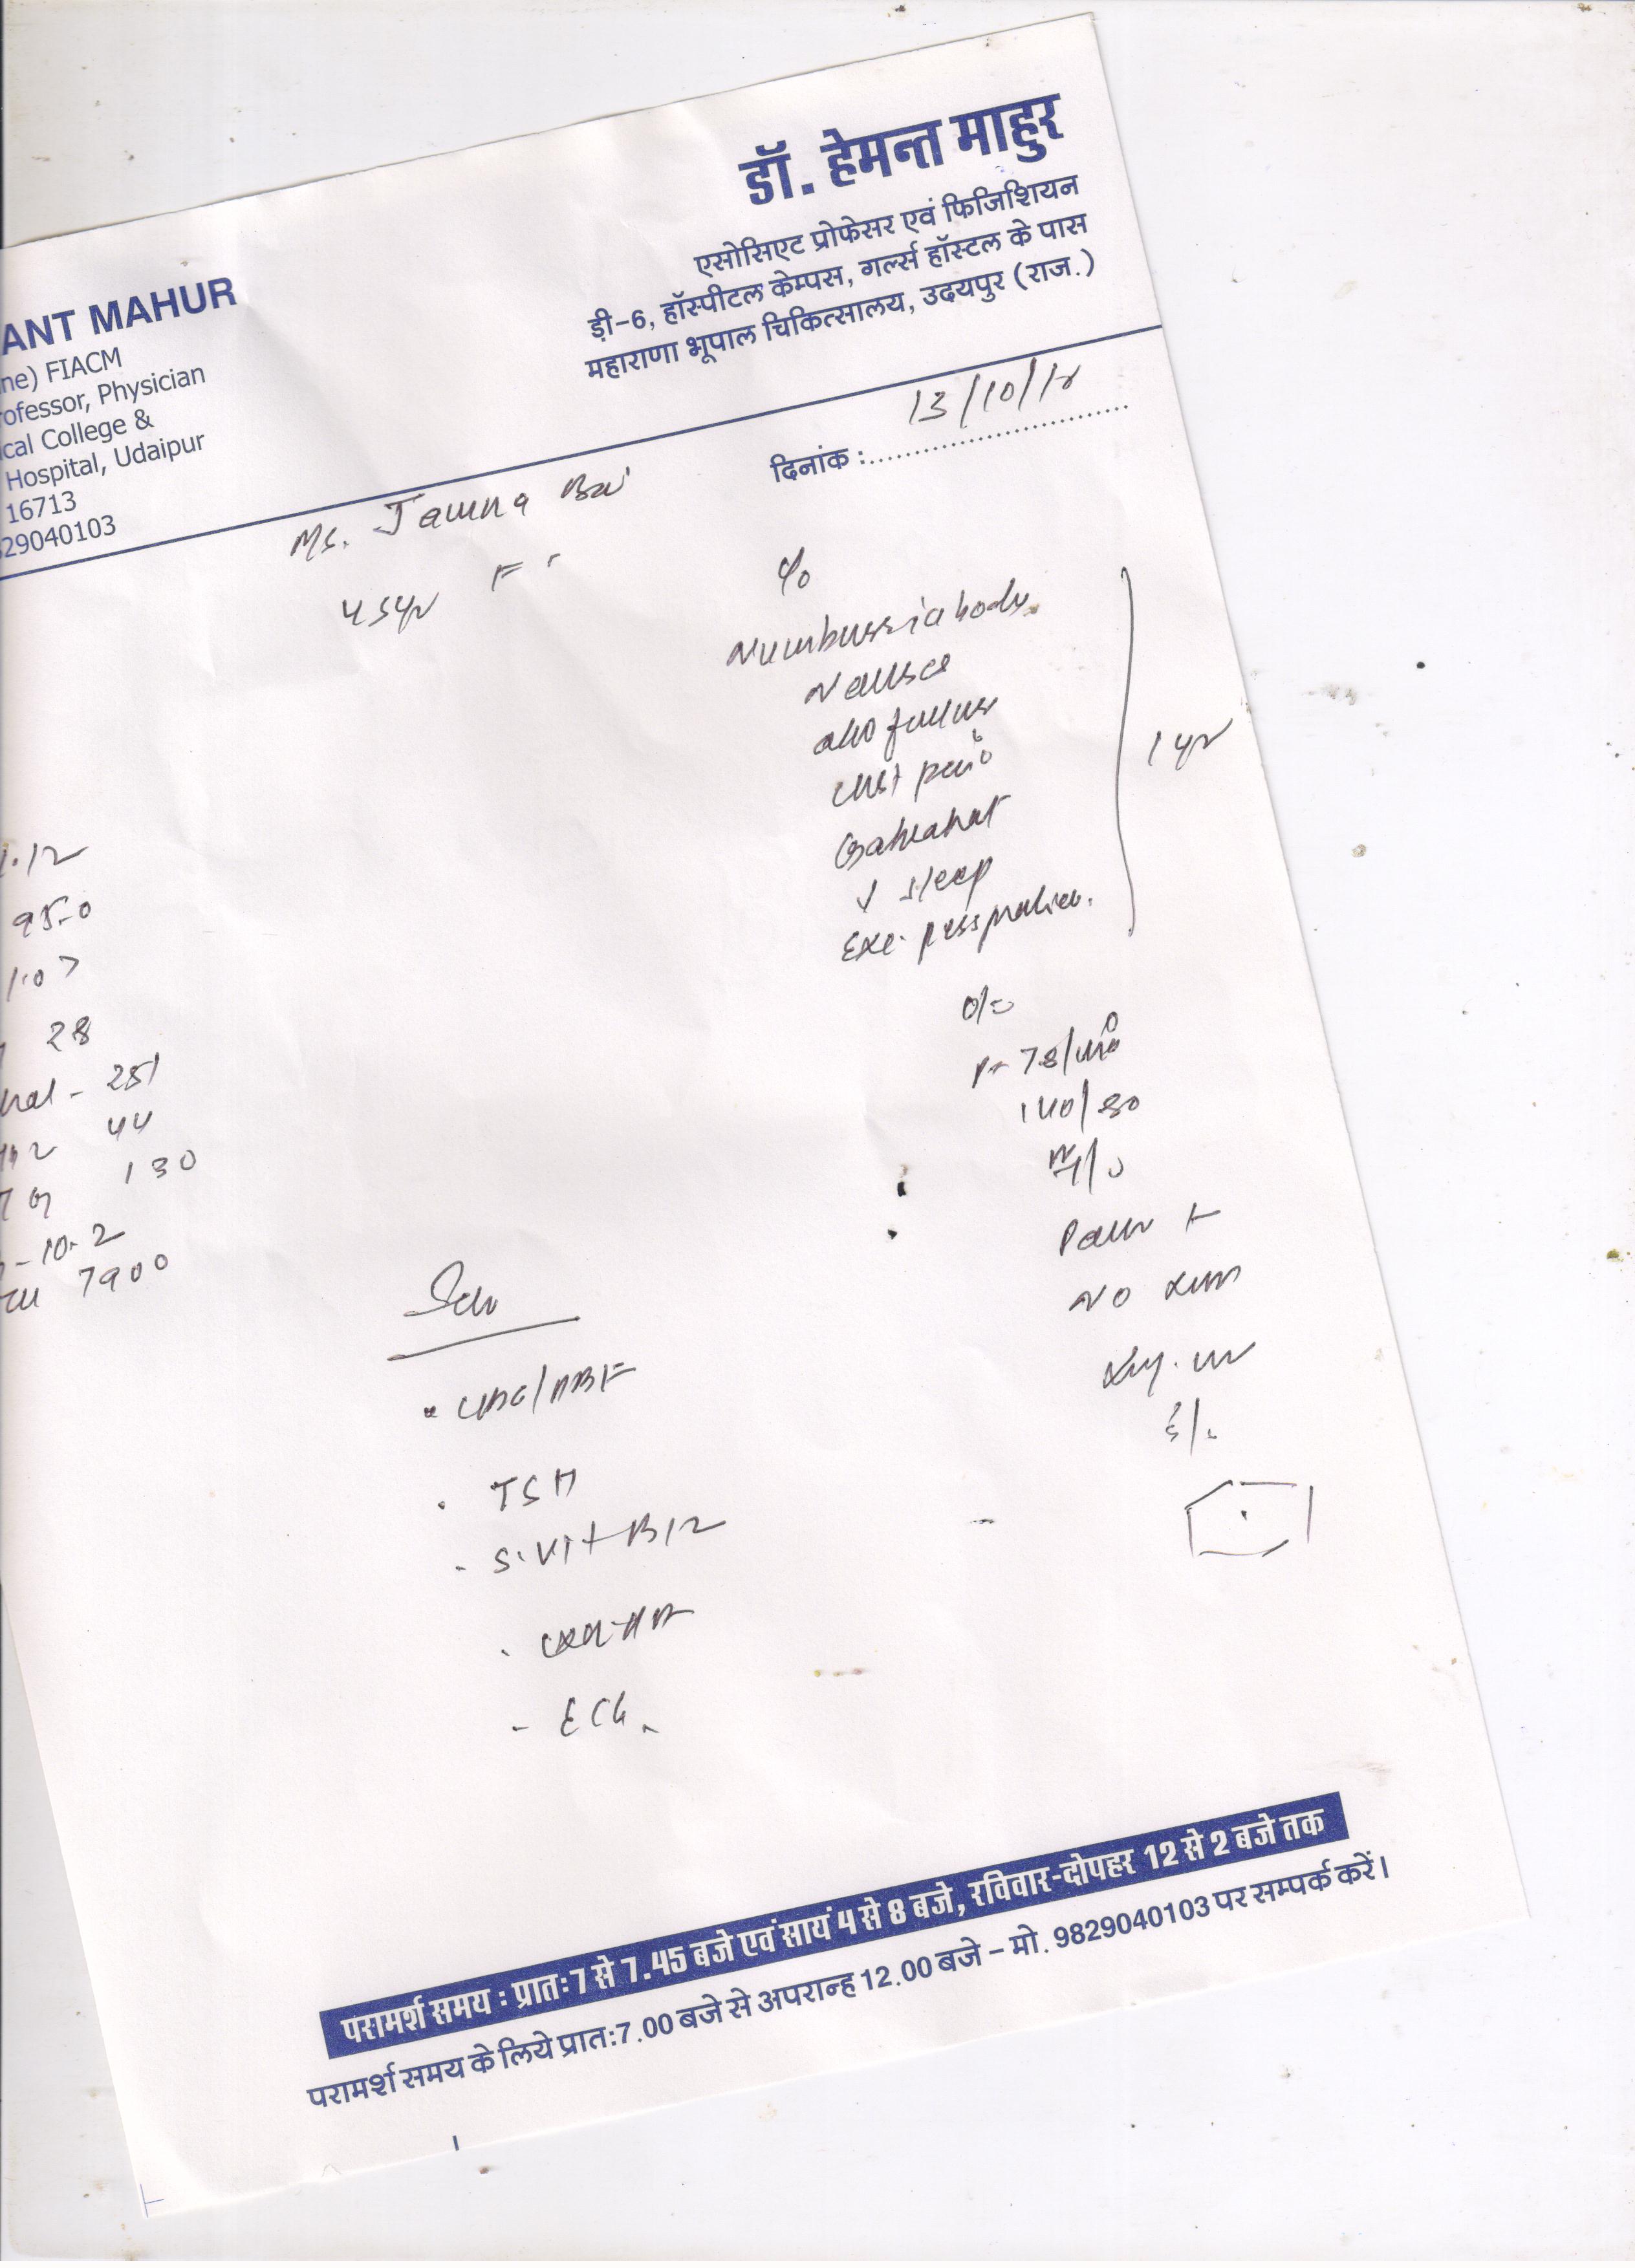 डॉ. हेमन्त माहुर
एसोसिएट प्रोफेसर एवं फिजिशियन
ड़ी-6, हॉस्पीटल केम्पस, गर्ल्स हॉस्टल के पास
महाराणा भूपाल चिकित्सालय, उदयपुर (राज.)
ANT MAHUR
ne) FIACM
ofessor, Physician
ical College &
Hospital, Udaipur
16713
29040103
दिनांक :
13/10/18
Ms. Jamna Bai
45yr F
c/o
Numbness in body
Nausea
abd fullness
chest pain
Gabrahat
↓ sleep
Exc. perspiration.
1 yr
o/e
P- 78/min
140/80
Pallor +
NO
S/E
1.12
950
1.07
28
251
44
130
-10.2
7900
Adv
• CBC/PBF
. TSH
- S. Vit B12
- ECG
परामर्श समय : प्रातः 7 से 7.45 बजे एवं सायं 4 से 8 बजे, रविवार-दोपहर 12 से 2 बजे तक
परामर्श समय के लिये प्रात:7.00 बजे से अपरान्ह 12.00 बजे – मो. 9829040103 पर सम्पर्क करें।